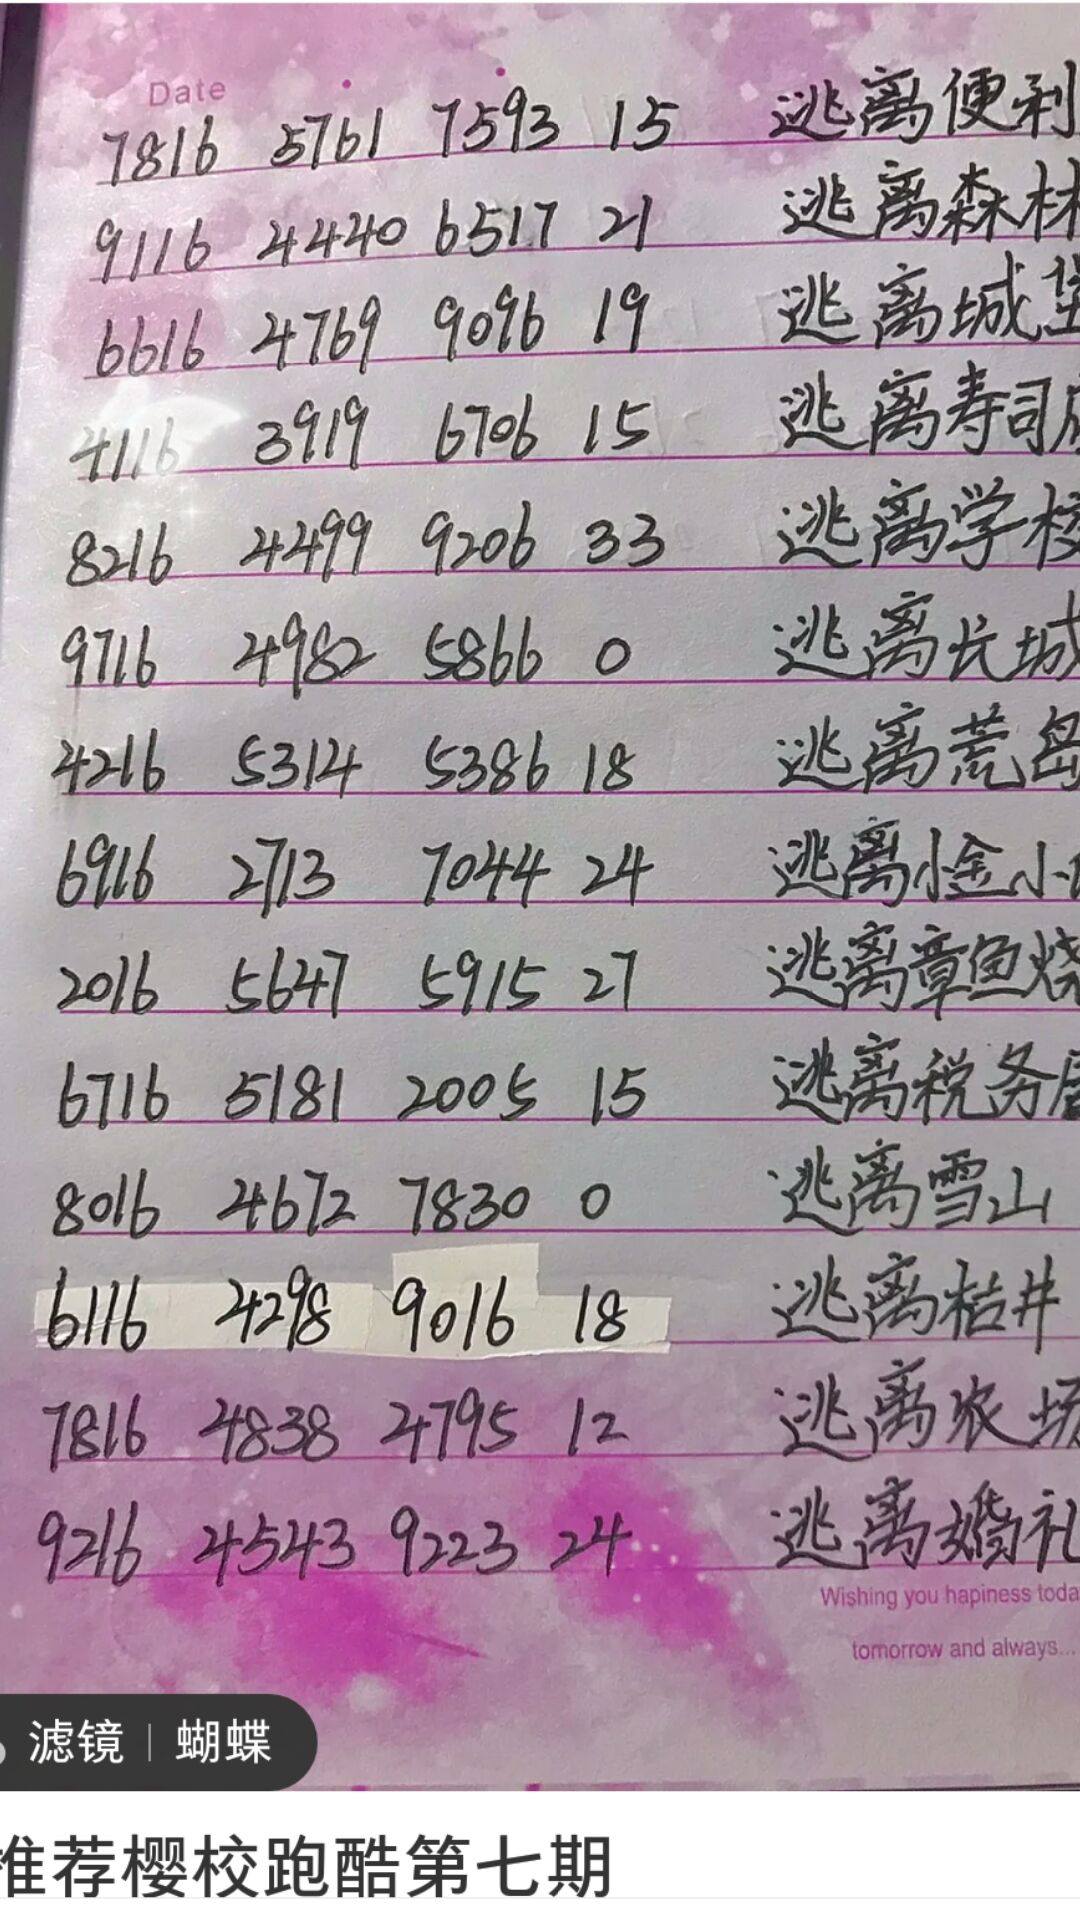 Date
7816 5761 7593 15 逃离便利
9116 4440 6517 21 逃离森林
6616 4769 9096 19 逃离城堡
4116 3919 6706 15 逃离寿司
8216 4499 9206 33 逃离学校
9716 4982 5866 0 逃离长城
4216 5314 5386 18 逃离荒岛
6916 2713 7044 24 逃离小金小
2016 5647 5915 27 逃离章鱼烧
6716 5181 2005 15 逃离税务
8016 4672 7830 0 逃离雪山
6116 4298 9016 18 逃离枯井
7816 4838 4795 12 逃离农场
9216 4543 9223 24 逃离婚礼
Wishing you hapiness toda
tomorrow and always...
滤镜 | 蝴蝶
推荐樱校跑酷第七期